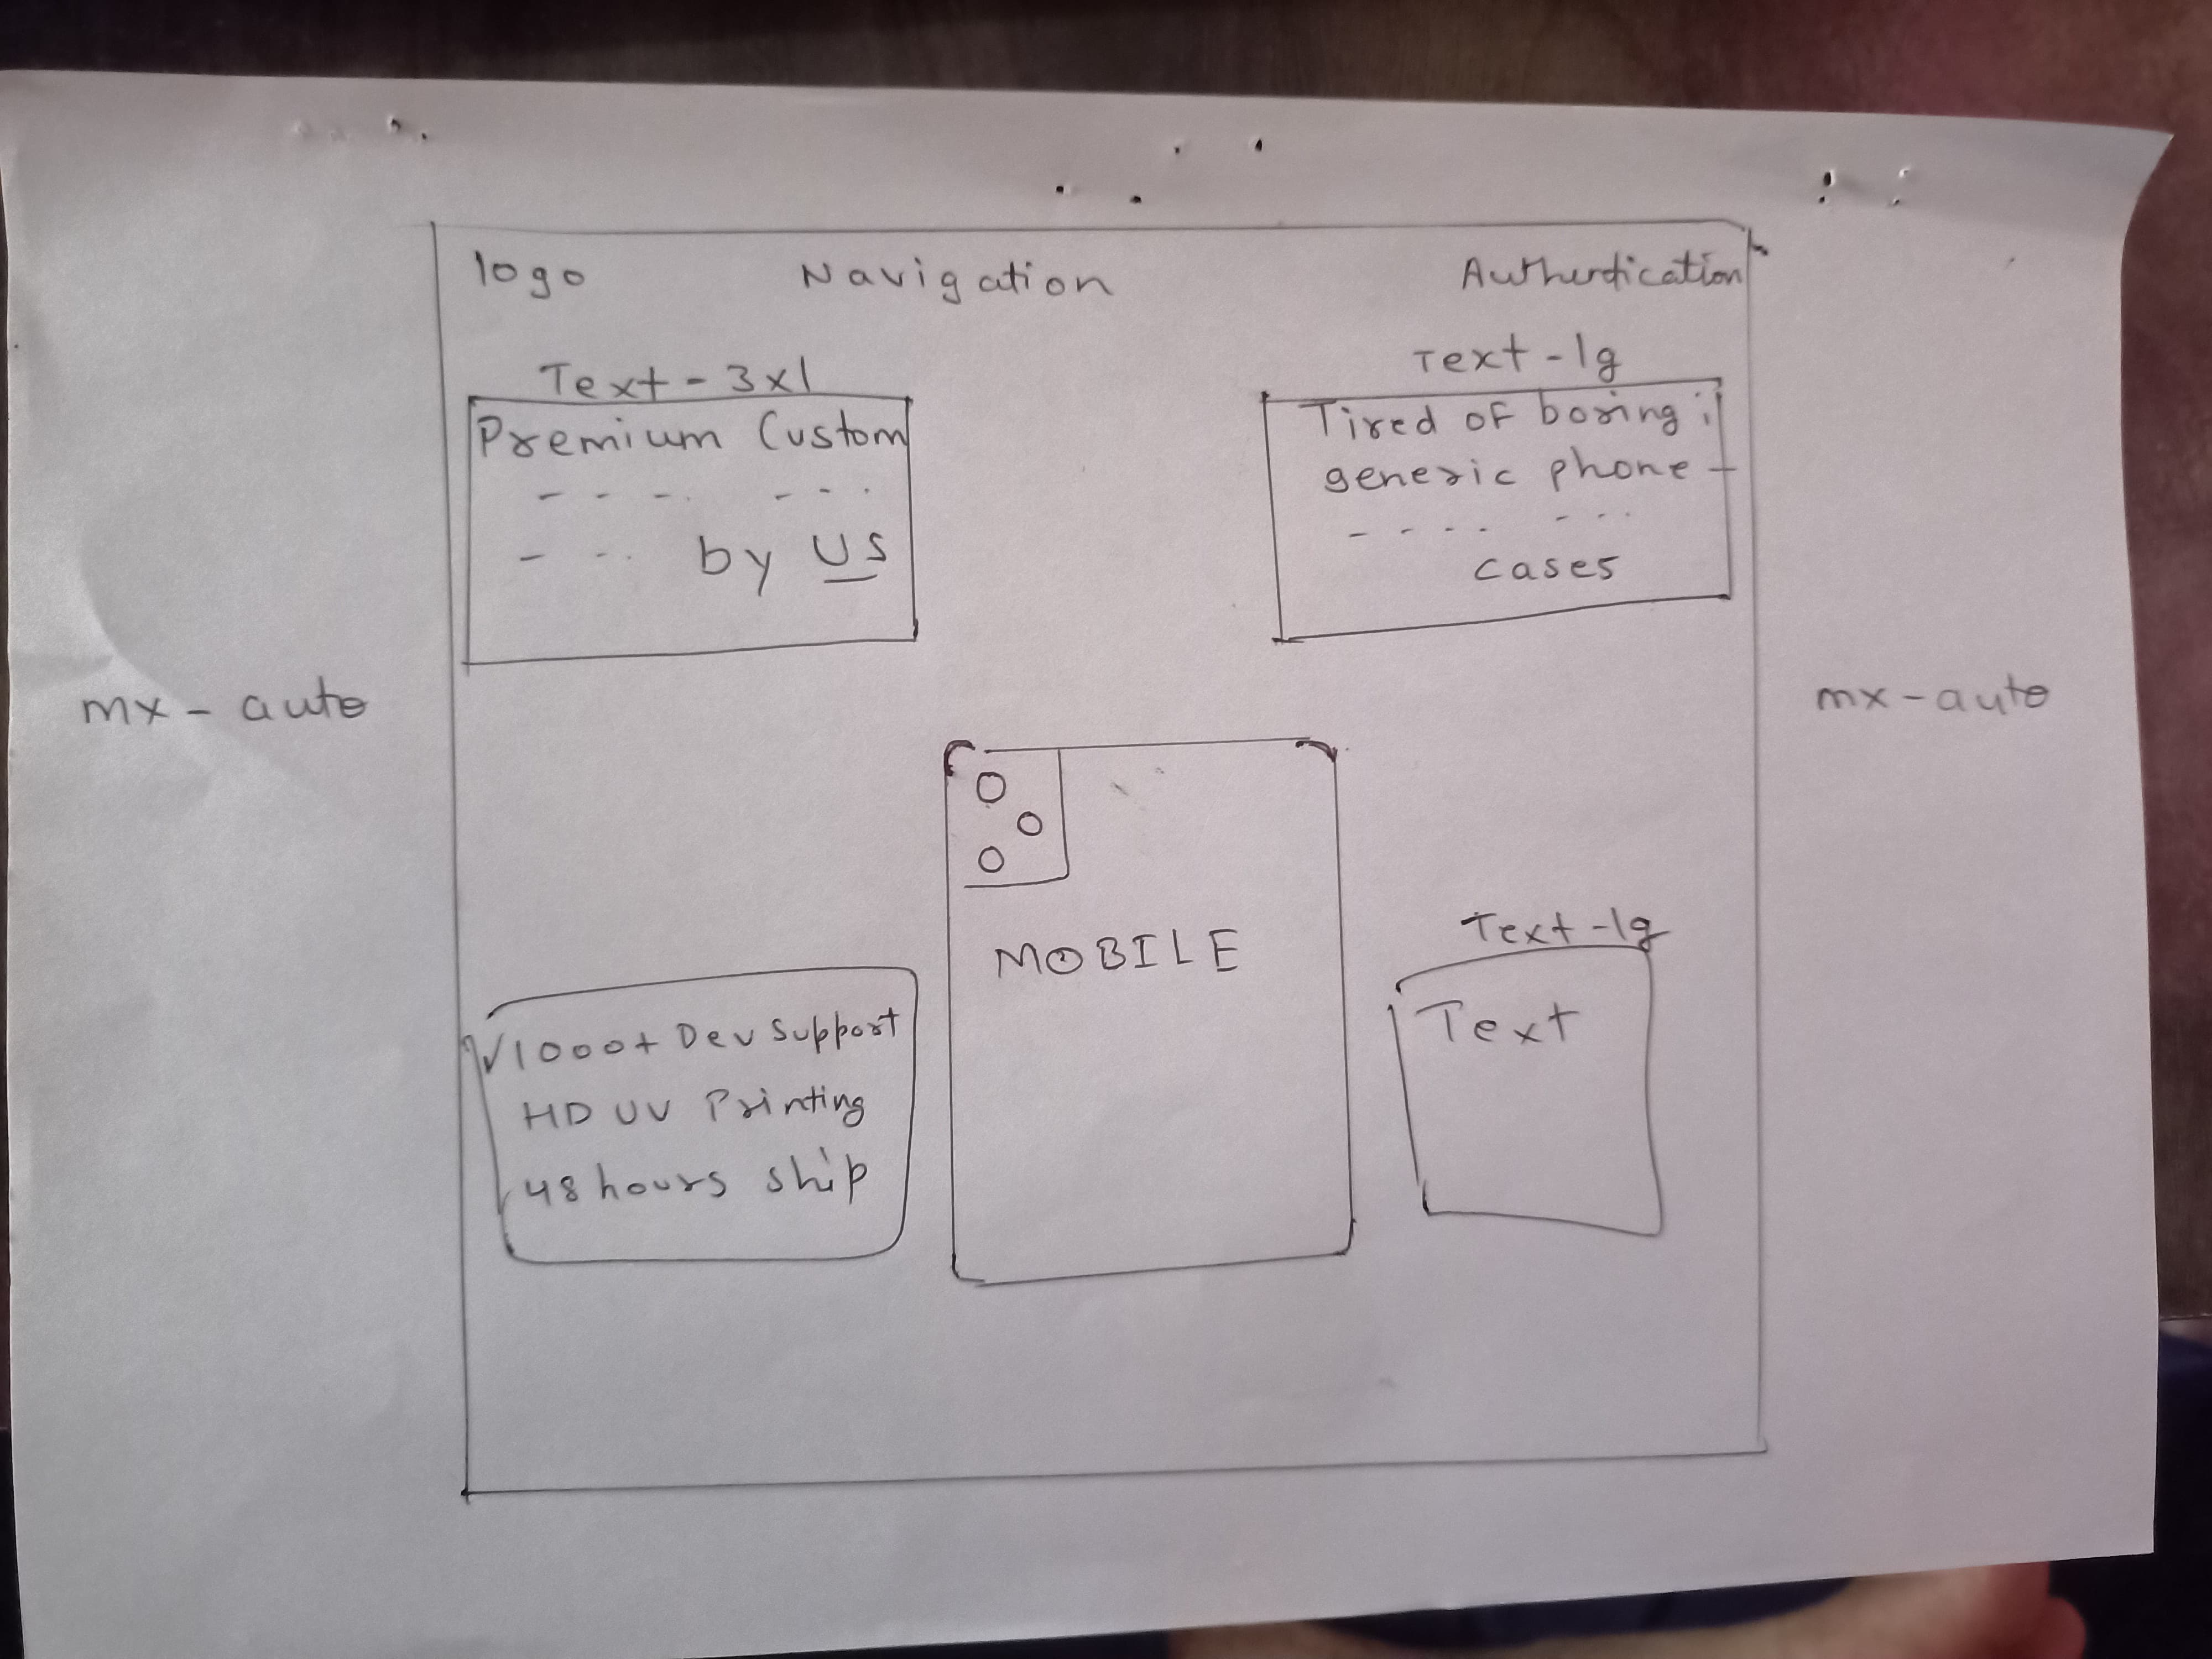 logo Navigation Authentication
Text - 3xl
Premium Custom
by US
Text - lg
Tired of boring
generic phone
cases
mx - auto
mx - auto
MOBILE
√1000+ Dev Support
HD UV Printing
48 hours ship
Text - lg
Text